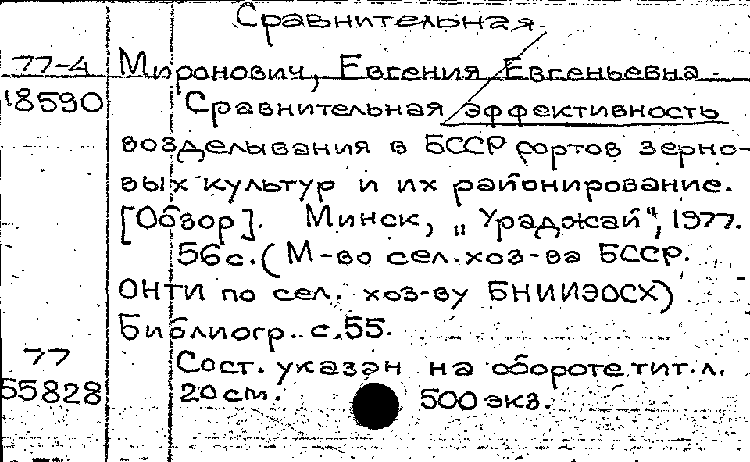 Сравнительная
77-4 Миронович, Евгения Евгеньевна
18590 Сравнительная эффективность
возделывания в БССР сортов зерно-
вых культур и их районирование.
[Обзор]. Минск, „Ураджай“, 1977.
56с. (М-во сел.хоз-ва БССР.
ОНТИ по сел. хоз-ву БНИИЭОСХ)
Библиогр. с.55.
77 Сост. указан на обороте тит.л.
55828 20см. 500 экз.